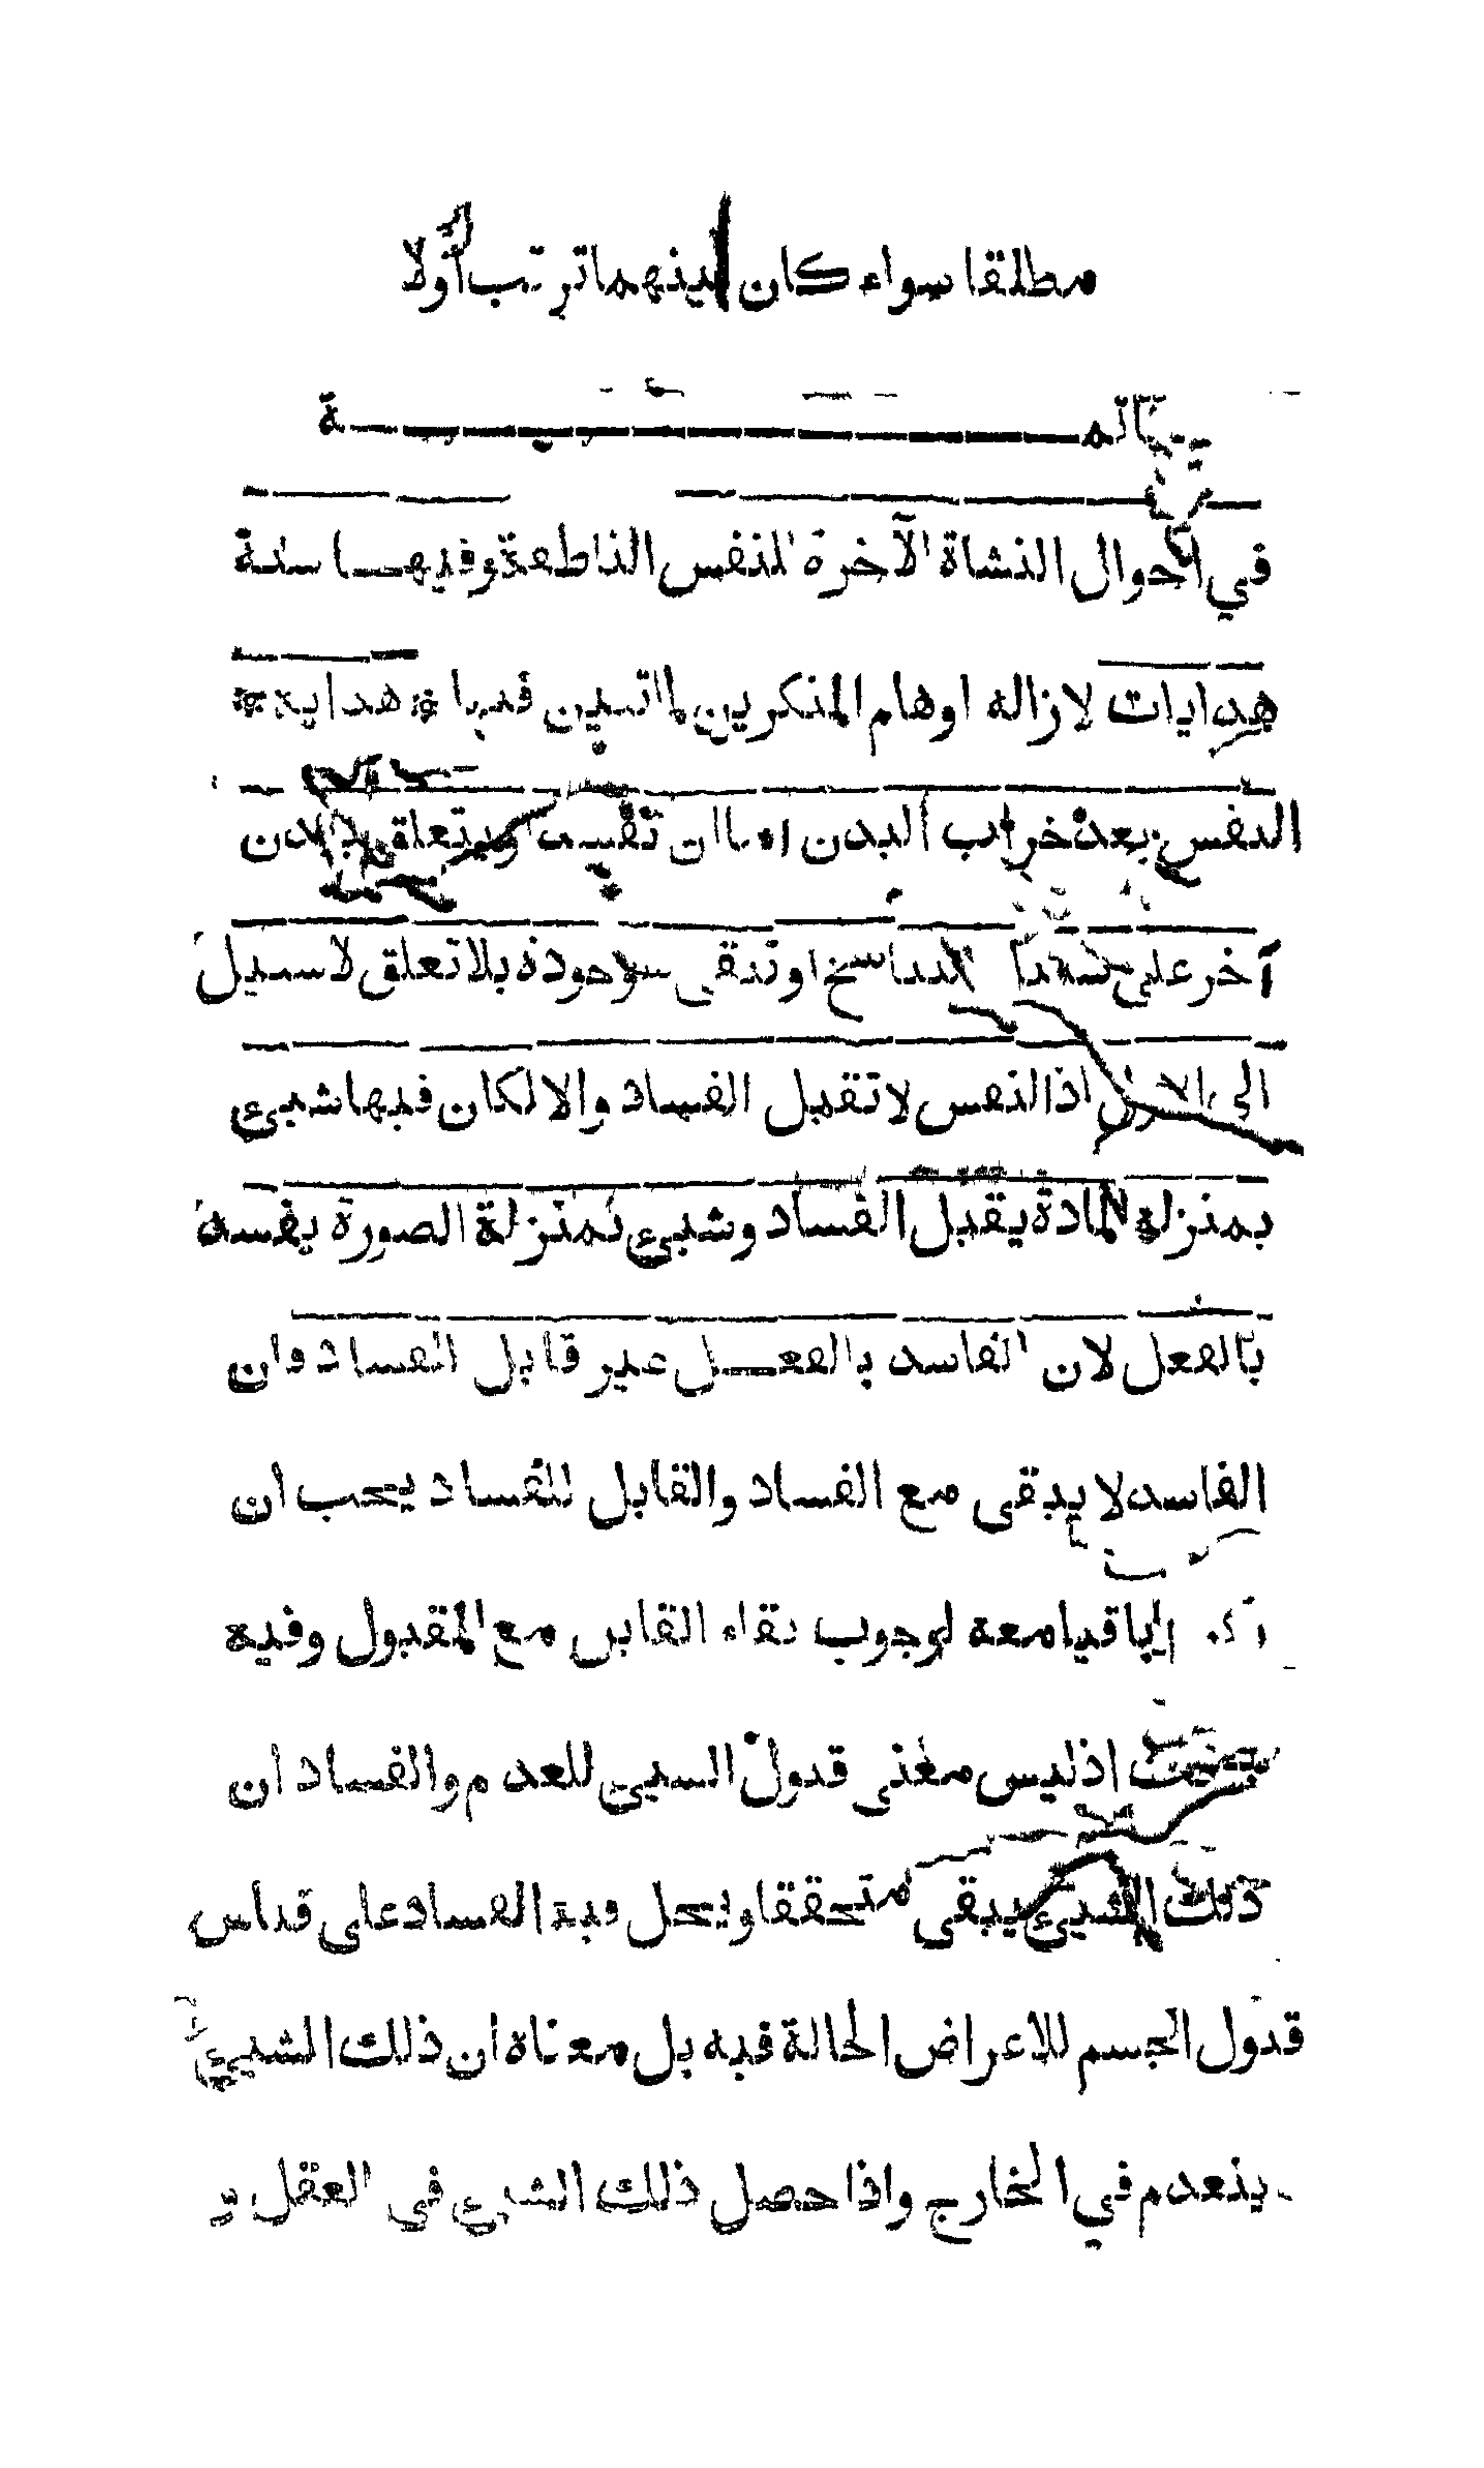 مطلقا سواء كان بينهما ترتب أو لا
خاتمة
في احوال النشاة الآخرة للنفس الناطقة وفيها ستة
هدايات لازاله اوهام المنكرين لما تبين فيها * هداية *
النفس بعد خراب البدن اما ان تفسد او تتعلق ببدن
آخر على التناسخ او تبقى موجودة بلا تعلق لا سبيل
الى الاول اذ النفس لا تقبل الفساد والا لكان فيها شيئ
بمنزلة المادة يقبل الفساد وشيئ بمنزلة الصورة يفسد
بالفعل لان الفاسد بالفعل غير قابل الفساد وان
الفاسد لا يبقى مع الفساد والقابل للفساد يجب ان
باقيا معه لوجوب بقاء القابل مع المقبول وفيه
اذ ليس معنى قبول الشيئ للعدم والفساد ان
ذلك الشيئ يبقى متحققا ويحل فيه الفساد على قياس
قبول الجسم للاعراض الحالة فيه بل معناه ان ذلك الشيئ
ينعدم في الخارج واذا حصل ذلك الشيئ في العقل